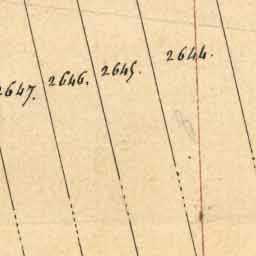 2647.
2646.
2645.
2644.